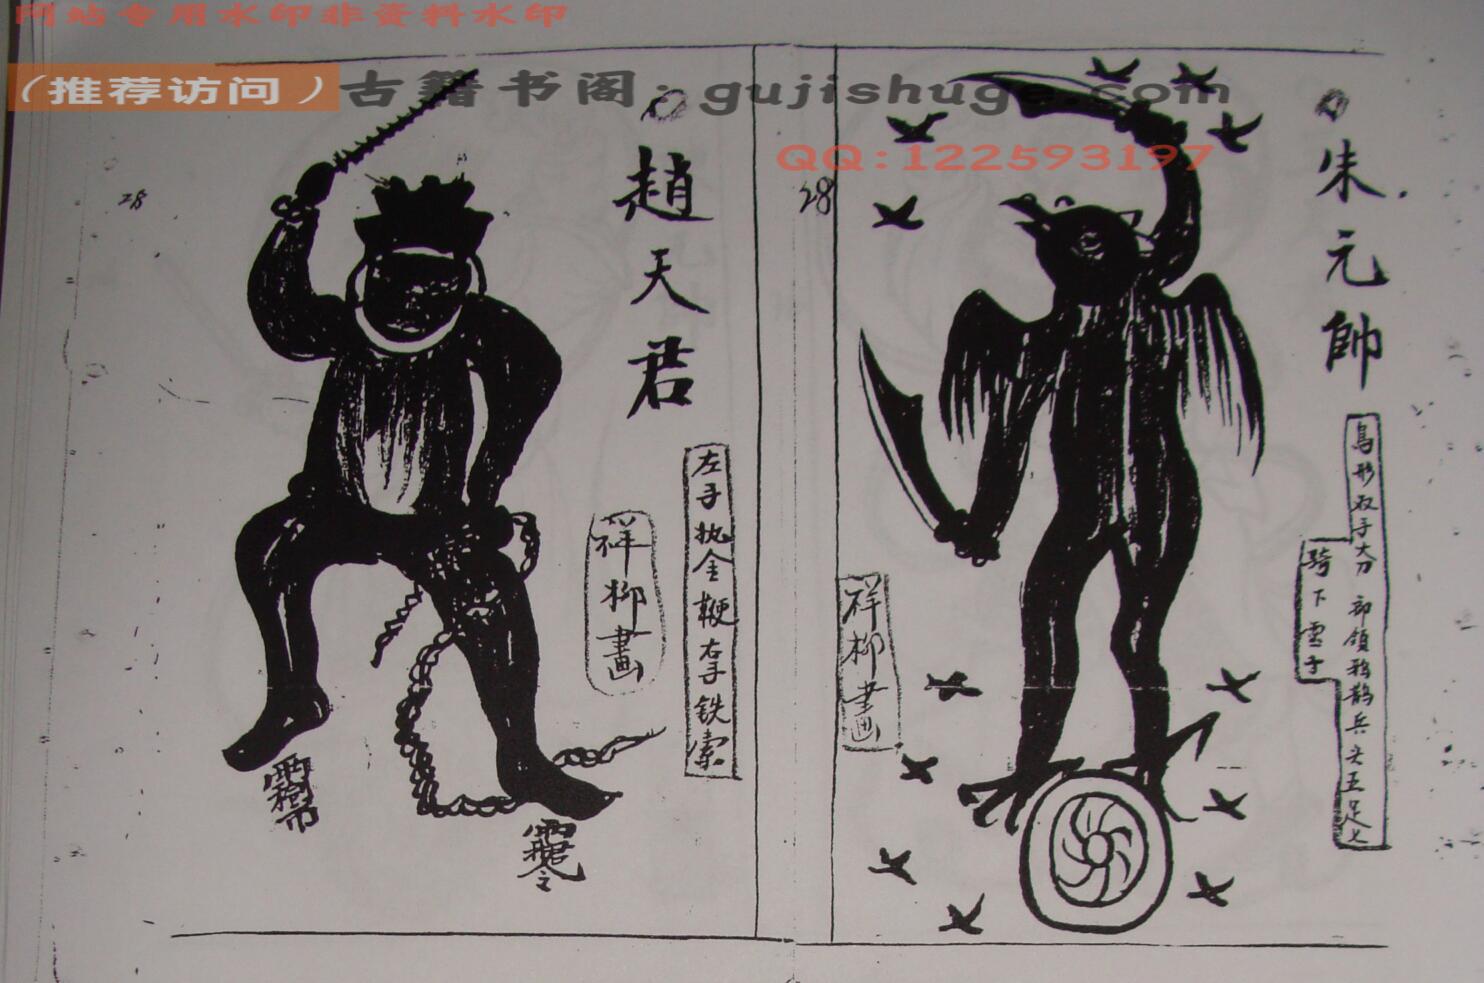 网站专用水印非资料水印
（推荐访问）古籍书阁：gujishuge.com
QQ:122593197
朱元帥
鳥形双手大刀 部領鴉鵲兵 头五足七
騎下雪
祥柳畫
28
趙天君
左手执金鞭右手铁索
祥柳畫
28